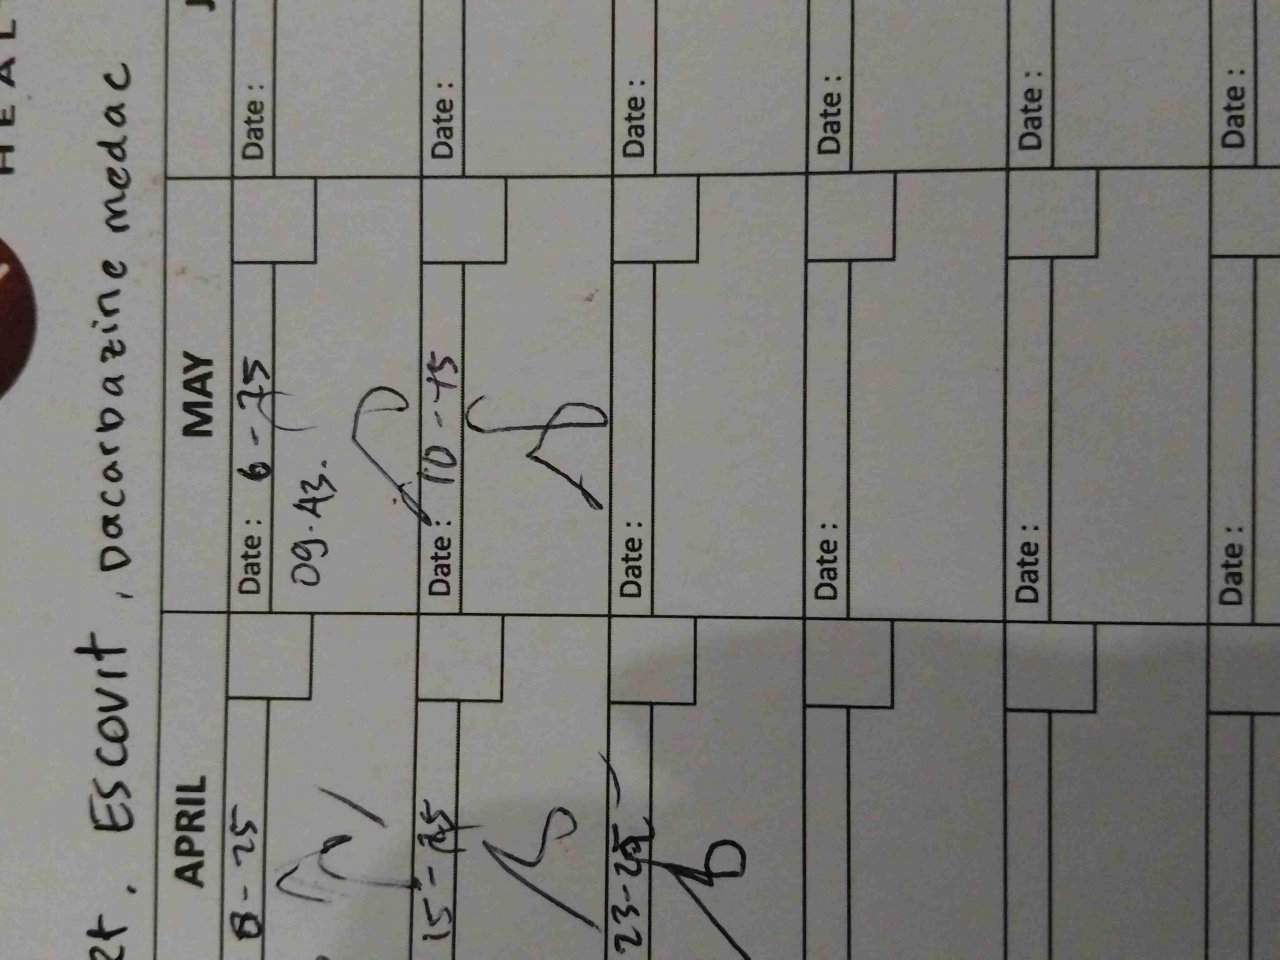 HEAL
et. Escovit, Dacarbazine medac
APRIL MAY J
8-25 Date: 6-25 Date:
09.43.
15-25 Date: 10-15 Date:
23-25 Date: Date:
Date: Date:
Date: Date:
Date: Date: